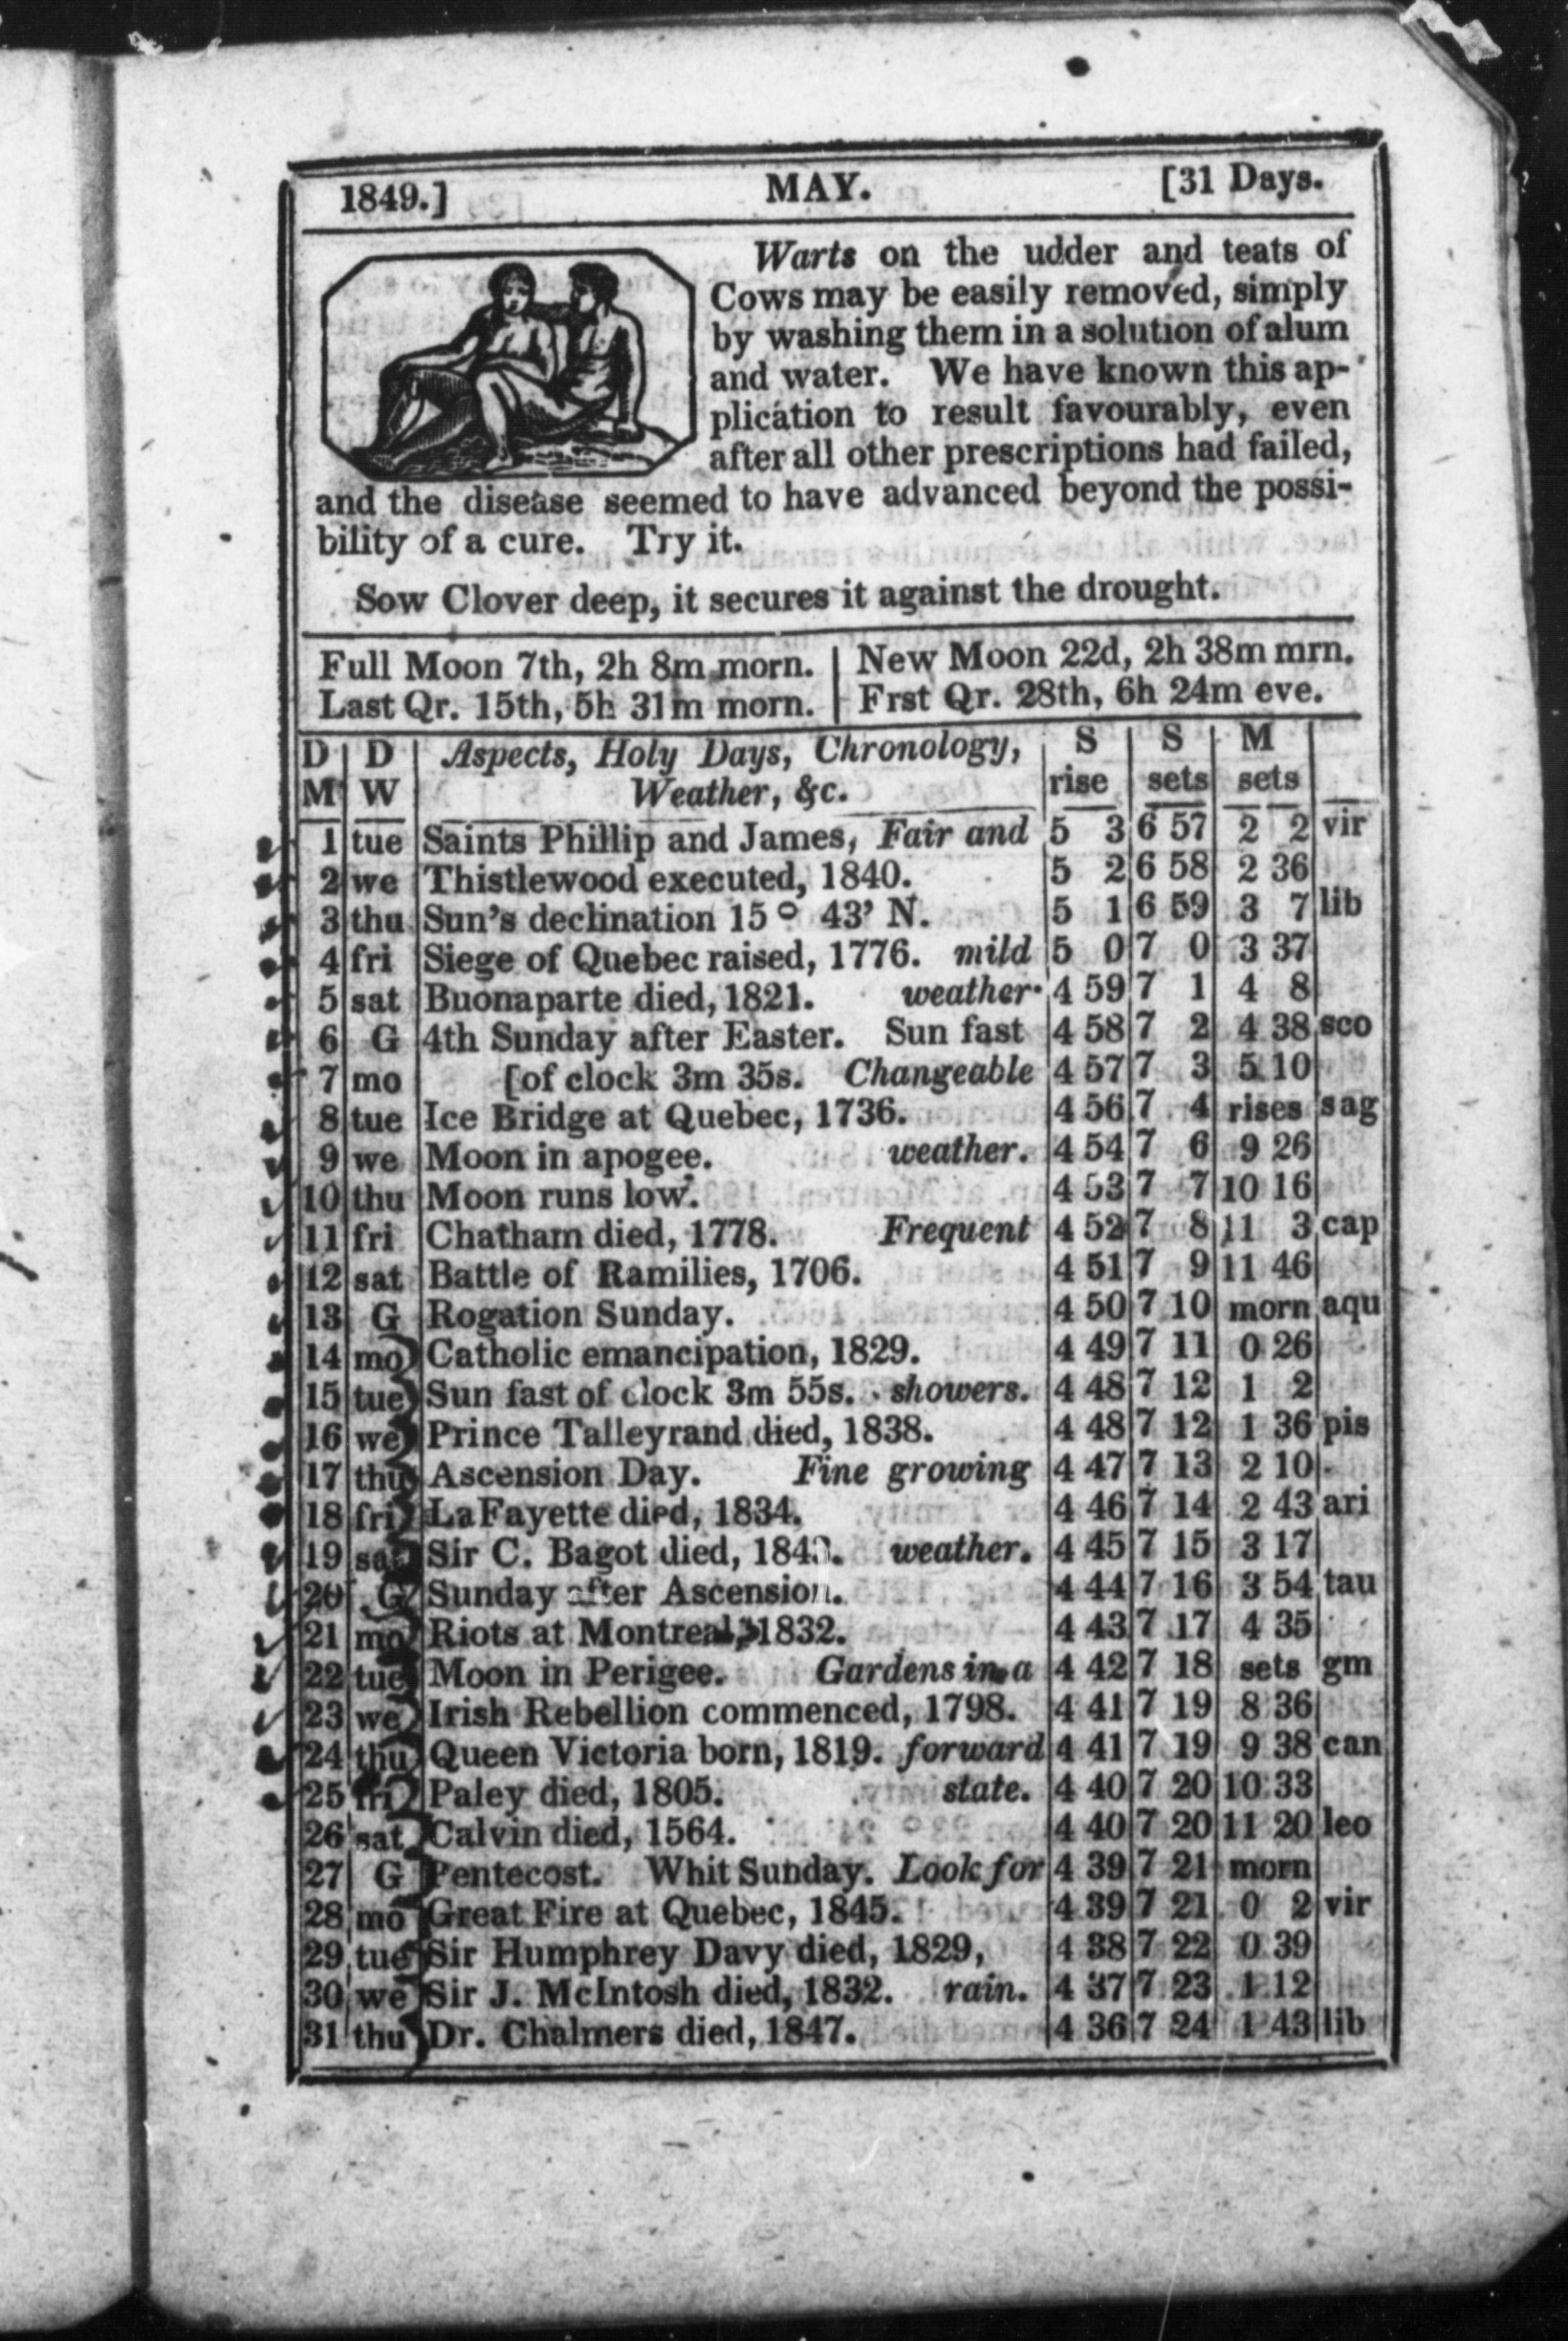 1849.] MAY. [31 Days.
Warts on the udder and teats of
Cows may be easily removed, simply
by washing them in a solution of alum
and water. We have known this ap-
plication to result favourably, even
after all other prescriptions had failed,
and the disease seemed to have advanced beyond the possi-
bility of a cure. Try it.
Sow Clover deep, it secures it against the drought.
Full Moon 7th, 2h 8m morn. | New Moon 22d, 2h 38m mrn.
Last Qr. 15th, 5h 31m morn. | Frst Qr. 28th, 6h 24m eve.
D D Aspects, Holy Days, Chronology, S S M
M W Weather, &c. rise sets sets
1 tue Saints Phillip and James, Fair and 5 3 6 57 2 2 vir
2 we Thistlewood executed, 1840. 5 2 6 58 2 36
3 thu Sun's declination 15° 43' N. 5 1 6 59 3 7 lib
4 fri Siege of Quebec raised, 1776. mild 5 0 7 0 3 37
5 sat Buonaparte died, 1821. weather 4 59 7 1 4 8
6 G 4th Sunday after Easter. Sun fast 4 58 7 2 4 38 sco
7 mo [of clock 3m 35s. Changeable 4 57 7 3 5 10
8 tue Ice Bridge at Quebec, 1736. 4 56 7 4 rises sag
9 we Moon in apogee. weather. 4 54 7 6 9 26
10 thu Moon runs low. 4 53 7 7 10 16
11 fri Chatham died, 1778. Frequent 4 52 7 8 11 3 cap
12 sat Battle of Ramilies, 1706. 4 51 7 9 11 46
13 G Rogation Sunday. 4 50 7 10 morn aqu
14 mo Catholic emancipation, 1829. 4 49 7 11 0 26
15 tue Sun fast of clock 3m 55s. showers. 4 48 7 12 1 2
16 we Prince Talleyrand died, 1838. 4 48 7 12 1 36 pis
17 thu Ascension Day. Fine growing 4 47 7 13 2 10
18 fri La Fayette died, 1834. 4 46 7 14 2 43 ari
19 sat Sir C. Bagot died, weather. 4 45 7 15 3 17
20 G Sunday after Ascension. 4 44 7 16 3 54 tau
21 mo Riots at Montreal, 1832. 4 43 7 17 4 35
22 tue Moon in Perigee. Gardens in a 4 42 7 18 sets gm
23 we Irish Rebellion commenced, 1798. 4 41 7 19 8 36
24 thu Queen Victoria born, 1819. forward 4 41 7 19 9 38 can
25 fri Paley died, 1805. state. 4 40 7 20 10 33
26 sat Calvin died, 1564. 4 40 7 20 11 20 leo
27 G Pentecost. Whit Sunday. Look for 4 39 7 21 morn
28 mo Great Fire at Quebec, 1845. 4 39 7 21 0 2 vir
29 tue Sir Humphrey Davy died, 1829, 4 38 7 22 0 39
30 we Sir J. McIntosh died, 1832. rain. 4 37 7 23 1 12
31 thu Dr. Chalmers died, 1847. 4 36 7 24 1 43 lib